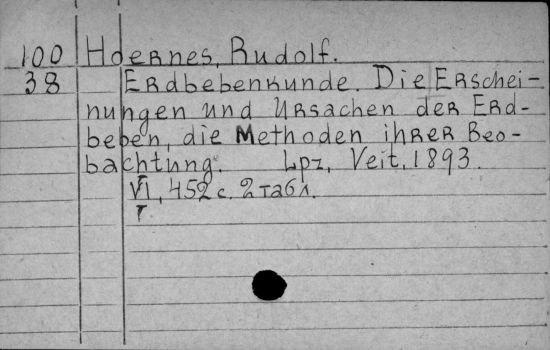 100 Hoernes, Rudolf.
38 Erdbebenkunde. Die Erschei-
nungen und Ursachen der Erd-
beben, die Methoden ihrer Beo-
bachtung. Lpz, Veit, 1893.
VI, 452 с. 2 табл.
т